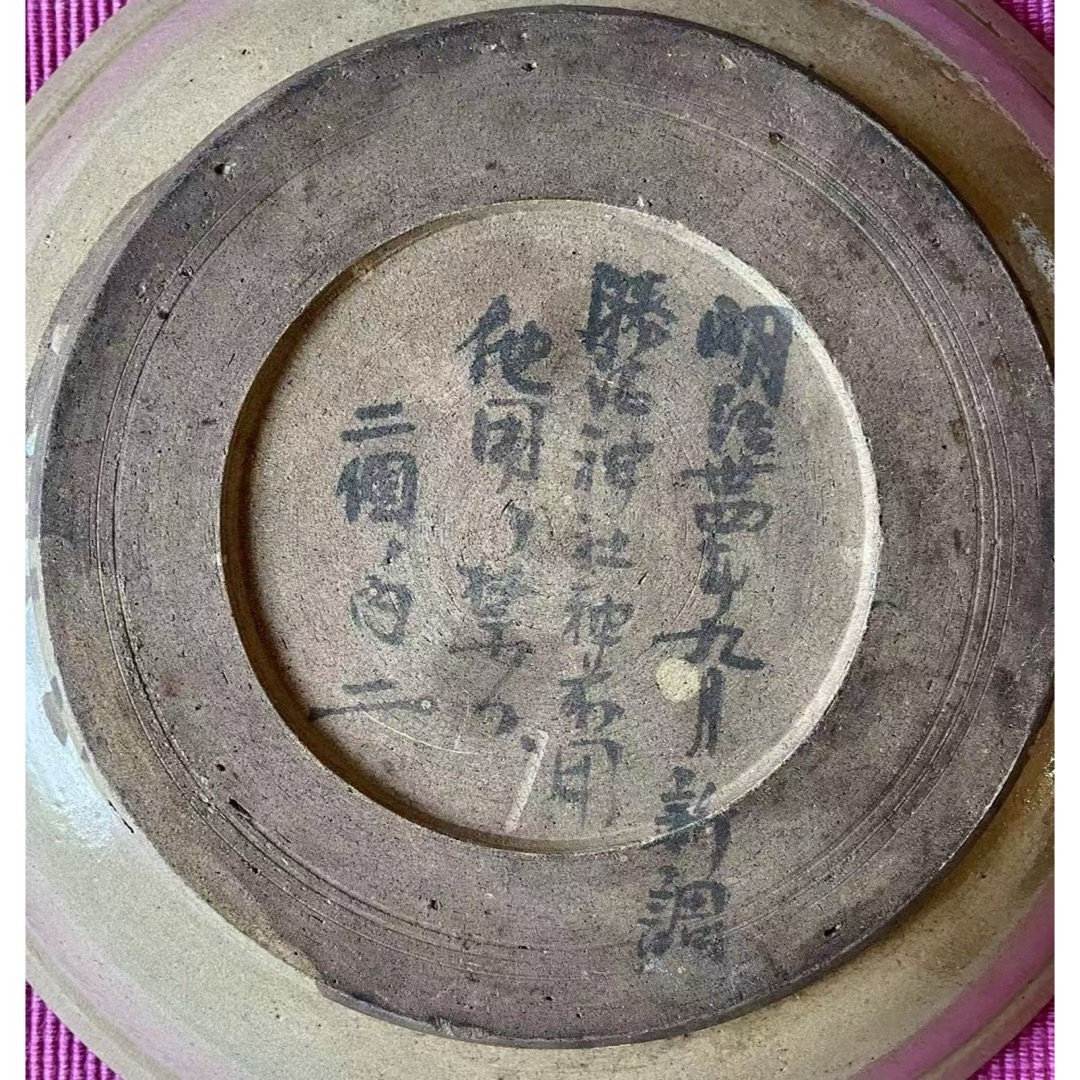 明治卅四年九月新調
勝治神社神前用
他用ヲ禁ズ
二個ノ内二